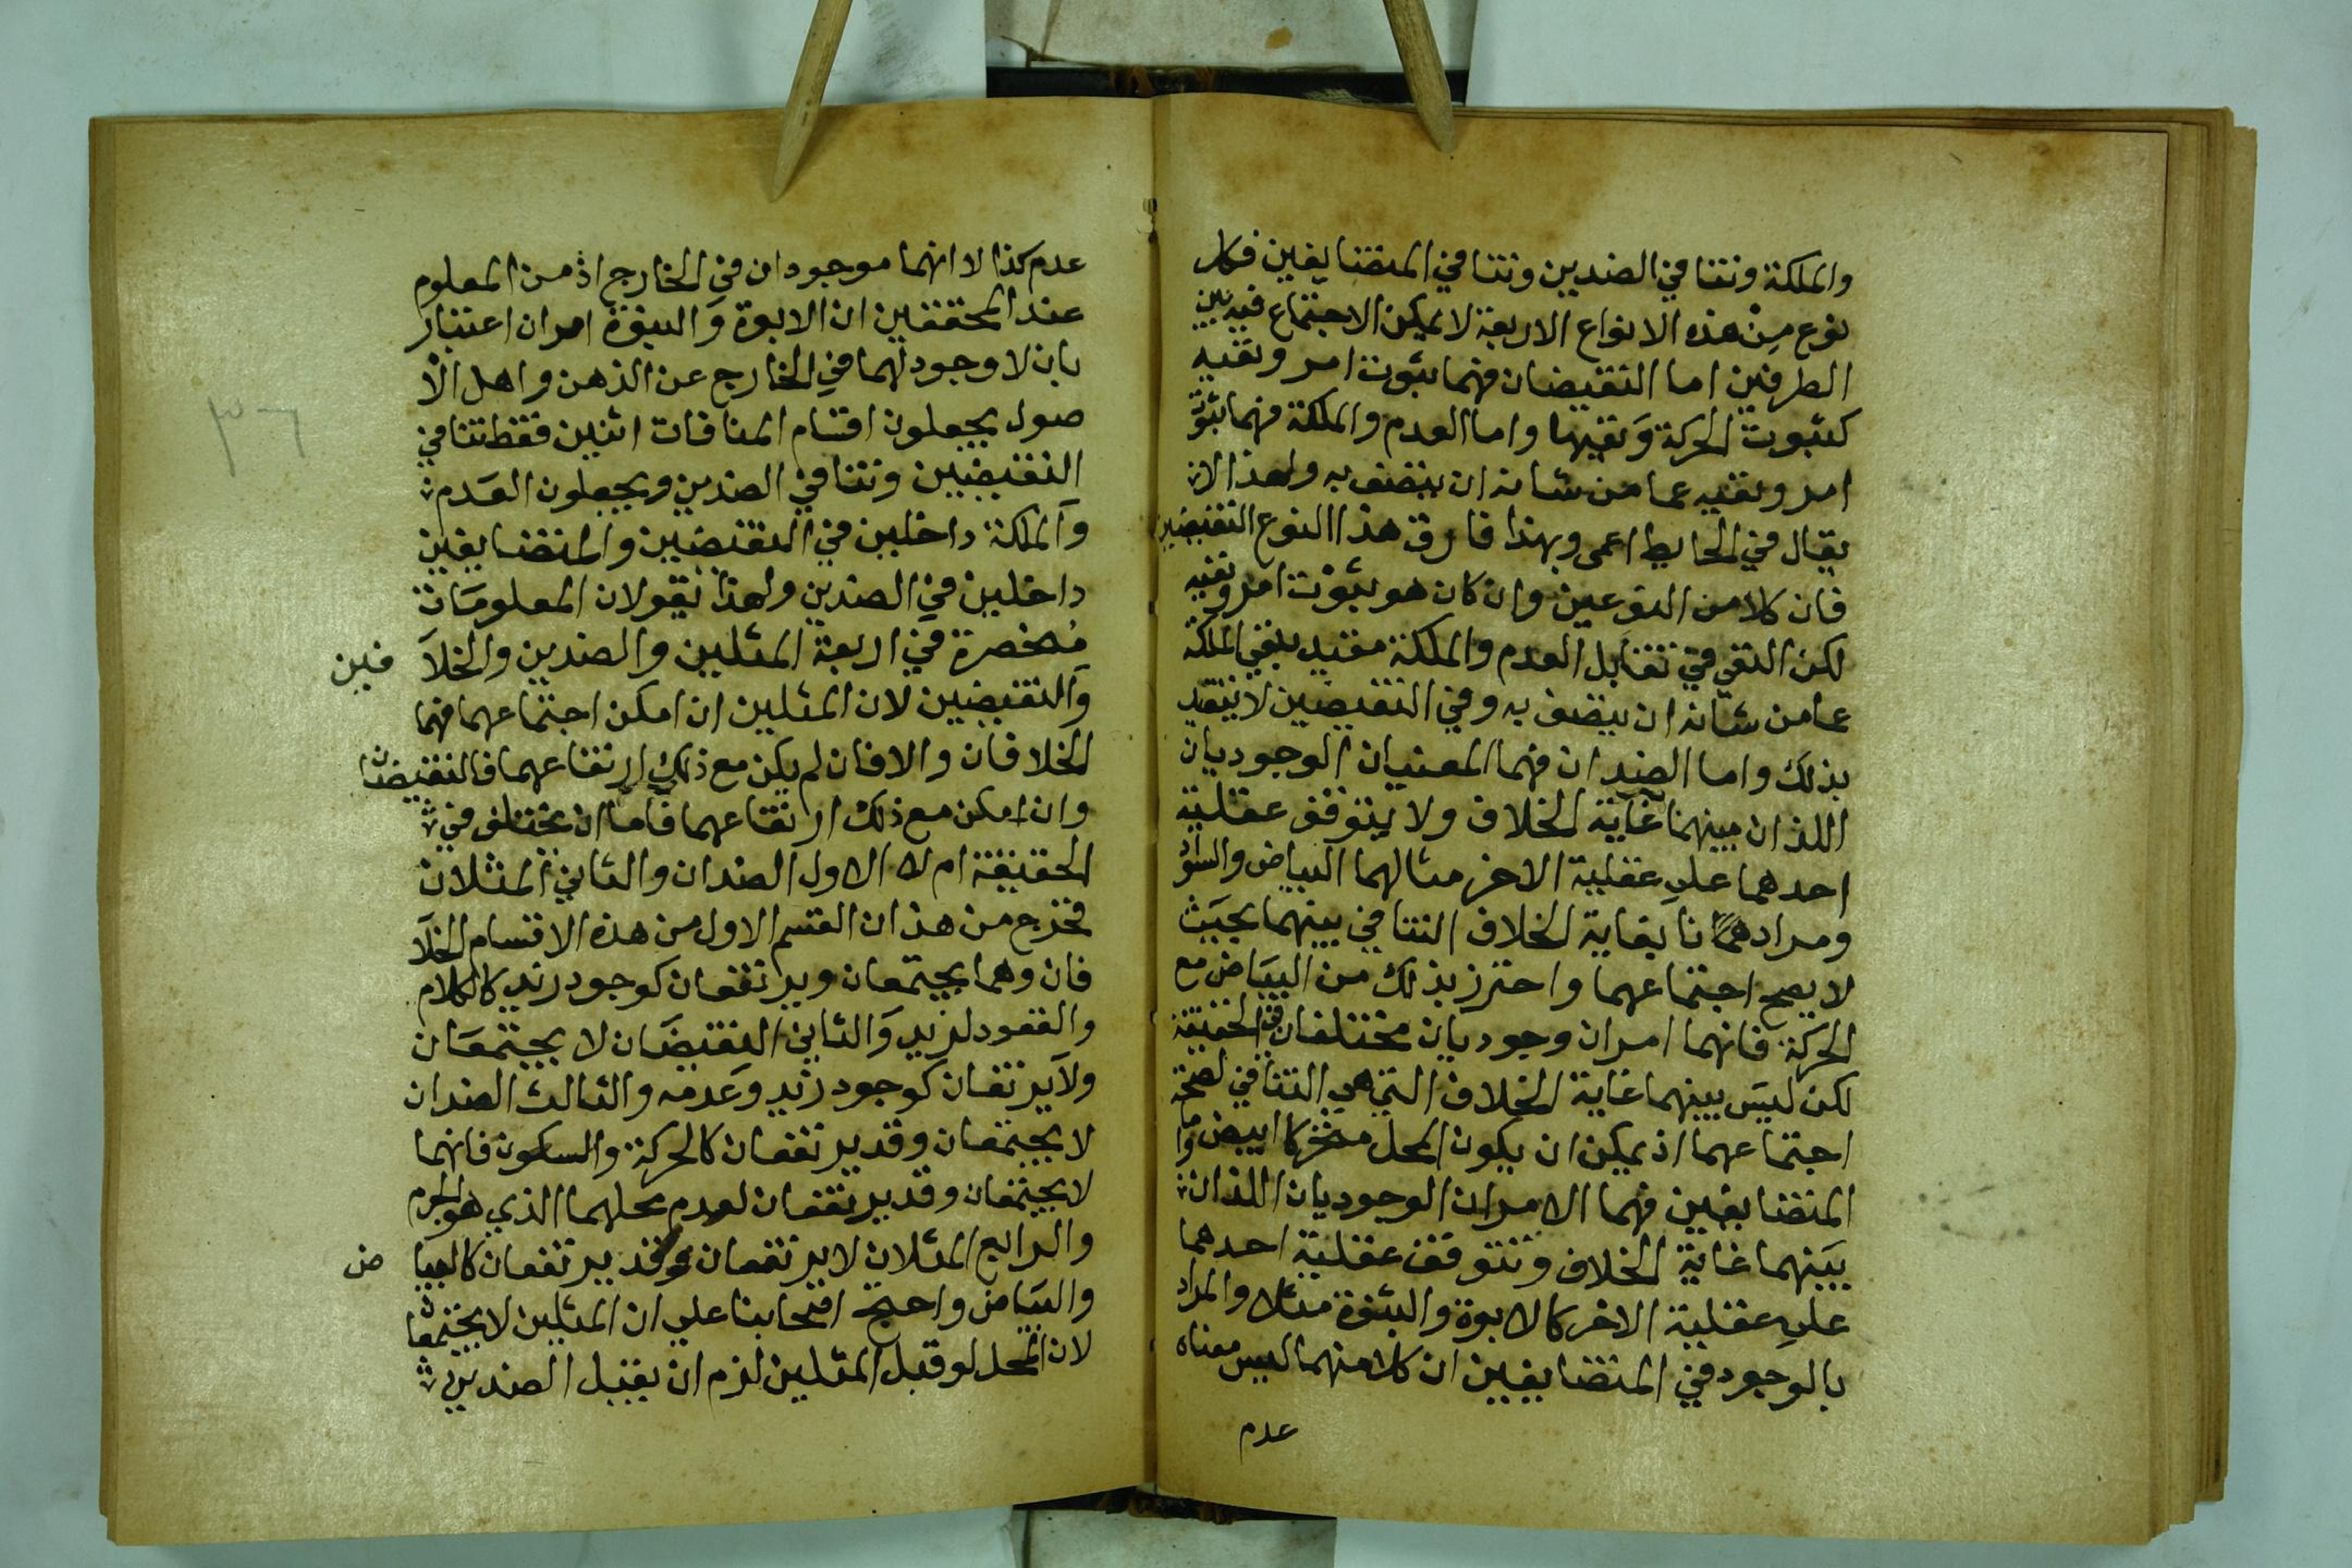 والملكة وتنافي الضدين وتنافي المتضايفين فكل
نوع من هذه الانواع الاربعة لا يمكن الاجتماع فيه بين
الطرفين اما النقيضان فهما ثبوت امر ونفيه
كثبوت الحركة ونفيها واما العدم والملكة فهما ثبوت
امر ونفيه عما من شانه ان يتصف به ولهذا لا
يقال في الحايط اعمى وبهذا فارق هذا النوع النقيضين
فان كلا من النوعين وان كان هو ثبوت امر ونفيه
لكن النفي في تقابل العدم والملكة مقيد بنفي الملكة
عما من شانه ان يتصف به وفي النقيضين لا يتقيد
بذلك واما الضدان فهما المعنيان الوجوديان
اللذان بينهما غاية الخلاف ولا يتوقف عقلية
احدهما على عقلية الاخر مثالهما البياض والسواد
ومرادهم بغاية الخلاف التنافي بينهما بحيث
لا يصح اجتماعهما واحترز بذلك من البياض مع
الحركة فانهما امران وجوديان مختلفان في الحقيقة
لكن ليس بينهما غاية الخلاف التي هي التنافي لصحة
اجتماعهما اذ يمكن ان يكون المحل متحركا ابيض واما
المتضايفين فهما الامران الوجوديان اللذان
بينهما غاية الخلاف وتتوقف عقلية احدهما
على عقلية الاخر كالابوة والبنوة مثلا والمراد
بالوجود في المتضايفين ان كلا منهما ليس معناه
عدم
عدم كذا لا انهما موجودان في الخارج اذ من المعلوم
عند المحققين ان الابوة والبنوة امران اعتبار
يان لا وجود لهما في الخارج عن الذهن واهل الا
صول يجعلون اقسام المنافات اثنين فقط تنافي
النقيضين وتنافي الضدين ويجعلون العدم
والملكة داخلين في النقيضين والمتضايفين
داخلين في الضدين ولهذا يقولان المعلومات
منحصرة في اربعة المثلين والضدين والخلا فين
والنقيضين لان المثلين ان امكن اجتماعهما فهما
الخلافان والا فان لم يكن مع ذلك ارتفاعهما فالنقيضان
وان امكن مع ذلك ارتفاعهما فاما ان يختلف في
الحقيقة ام لا الاول الضدان والثاني المثلان
فخرج من هذان القسم الاول من هذه الاقسام الخلا
فان وهما يجتمعان ويرتفعان كوجود زيد كالكلام
والقعود لزيد والثاني النقيضان لا يجتمعان
ولا يرتفعان كوجود زيد وعدمه والثالث الضدان
لا يجتمعان وقد يرتفعان كالحركة والسكون فانهما
لا يجتمعان وقد يرتفعان لعدم محلهما الذي هو الجرم
والرابع المثلان لا يرتفعان وقد يرتفعان كالبيا ض
والبياض واحتج اصحابنا علي ان المثلين لا يجتمعان
لان المحل لو قبل المثلين لزم ان يقبل الضدين
٣٦